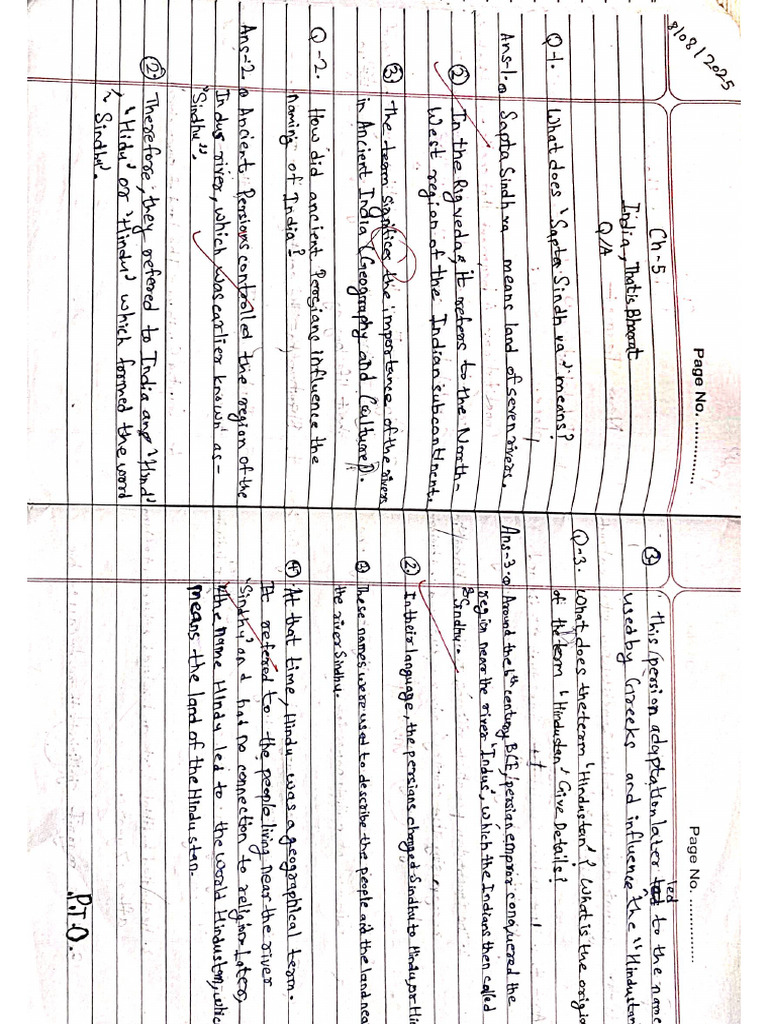 8/08/2025
Page No. ................
Ch-5
India, That is Bharat
Q/A
Q-1. What does 'Sapta Sindhva' means?
Ans-1. Sapta Sindhva means land of seven rivers.
② In the Rig veda, it refers to the North-
West region of the Indian subcontinent.
③ The term significes the importance of the rivers
in Ancient India (Geography and Culture).
Q-2. How did ancient Persians influence the
naming of India?
Ans-2. Ancient Persions controlled the region of the
Indus river, which was earlier known as-
"Sindhu".
② Therefore, they refered to India and 'Hind'
'Hidu' or 'Hindu' which formed the word
Sindhu'.
Page No. ................
③ This persion adaptation later led to the name
used by Greeks and influence the "Hindustan
Q-3. What does the term 'Hindustan'? What is the origin
of the term 'Hindustan' Give Details?
Ans-3. Around the 6th century BCE, persian empror conquered the
region near the river 'Indus', which the Indians then called
Sindhu.
② In their language, the persians changed Sindhu to Hindu, or Hi
③ These names were used to describe the people and the land nea
the river Sindhu.
④ At that time, Hindu was a geographical term.
It referred to the people living near the river
'Sindhu' and had no connection to religion. Later,
the name Hindu led to the world Hindustan, whic
means the land of the Hindustan.
P.T.O.